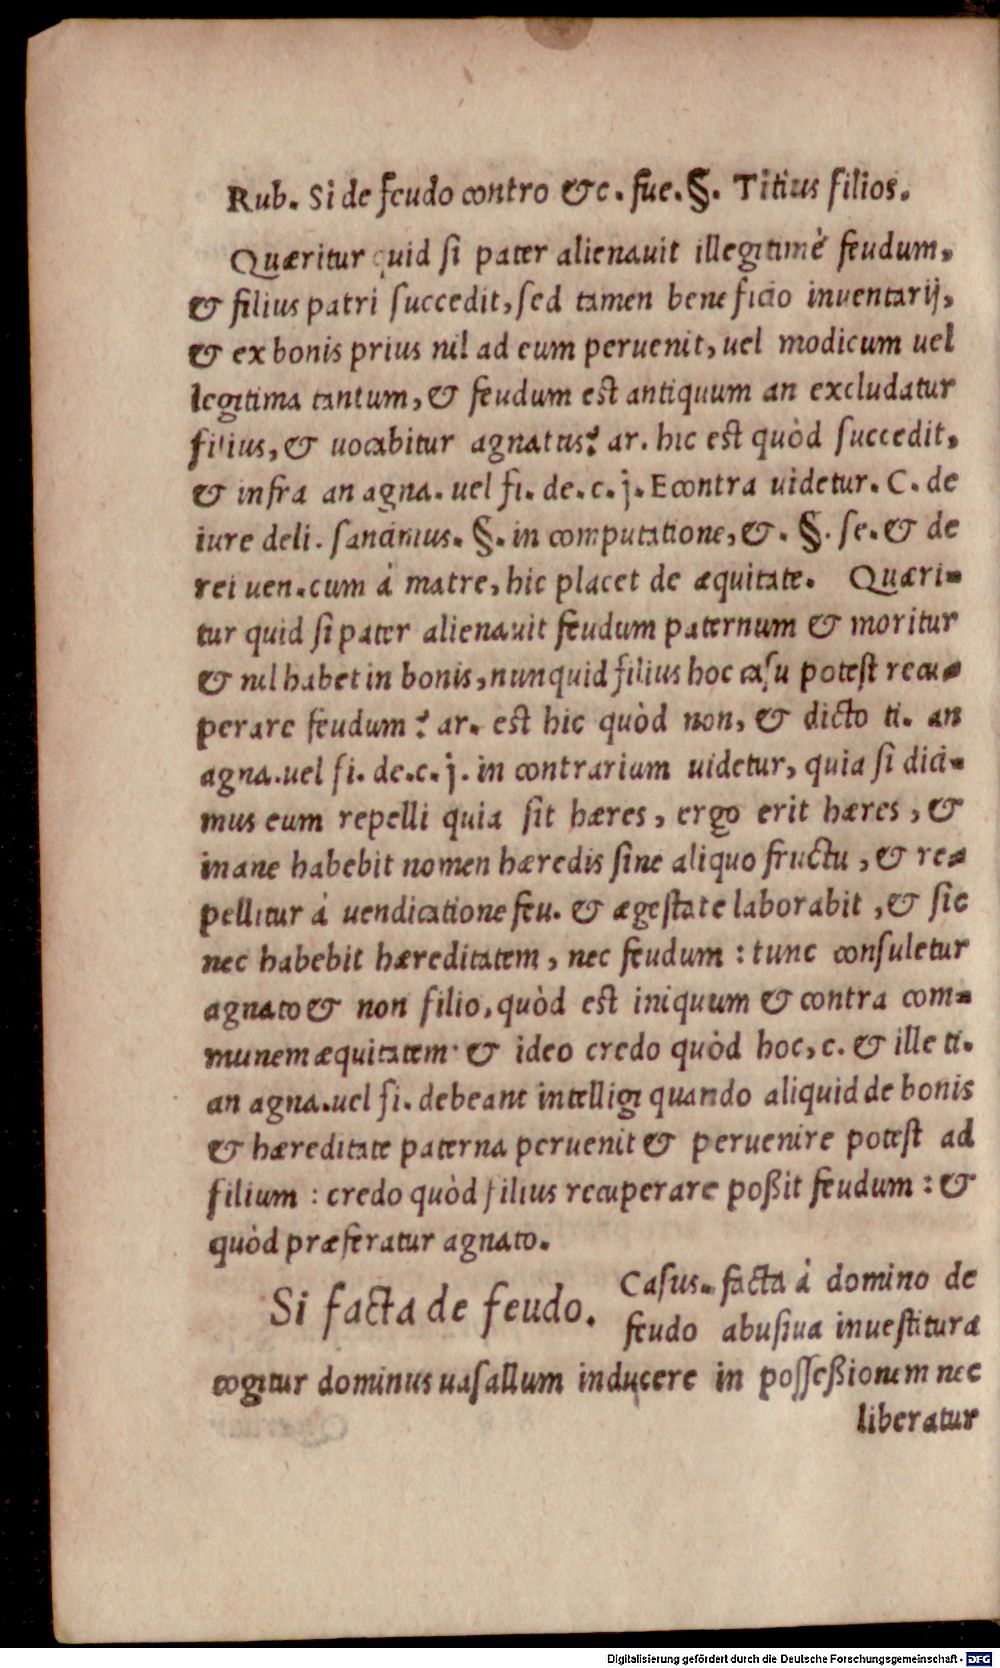 Rub. Si de feudo contro &c. fue. §. Titius filios.
Quæritur quid si pater alienauit illegitimè feudum,
& filius patri succedit, sed tamen beneficio inuentarij,
& ex bonis prius nil ad eum peruenit, uel modicum uel
legitima tantum, & feudum est antiquum an excludatur
filius, & uocabitur agnatus? ar. hic est quòd succedit,
& infra an agna. uel fi. de. c. j. Econtra uidetur. C. de
iure deli. sancimus. §. in computatione, &. §. se. & de
rei uen. cum à matre, hic placet de æquitate. Quæri-
tur quid si pater alienauit feudum paternum & moritur
& nil habet in bonis, nunquid filius hoc casu potest recu-
perare feudum? ar. est hic quòd non, & dicto ti. an
agna. uel fi. de. c. j. in contrarium uidetur, quia si dici-
mus eum repelli quia sit hæres, ergo erit hæres, &
inane habebit nomen hæredis sine aliquo fructu, & re-
pellitur à uendicatione feu. & ægestate laborabit, & sic
nec habebit hæreditatem, nec feudum: tunc consuletur
agnato & non filio, quòd est iniquum & contra com-
munem æquitatem· & ideo credo quòd hoc, c. & ille ti.
an agna. uel fi. debeant intelligi quando aliquid de bonis
& hæreditate paterna peruenit & peruenire potest ad
filium: credo quòd filius recuperare poßit feudum: &
quòd præferatur agnato.
Si facta de feudo. Casus. facta à domino de
feudo abusiua inuestitura
cogitur dominus uasallum inducere in posseßionem nec
liberatur
Digitalisierung gefördert durch die Deutsche Forschungsgemeinschaft - DFG